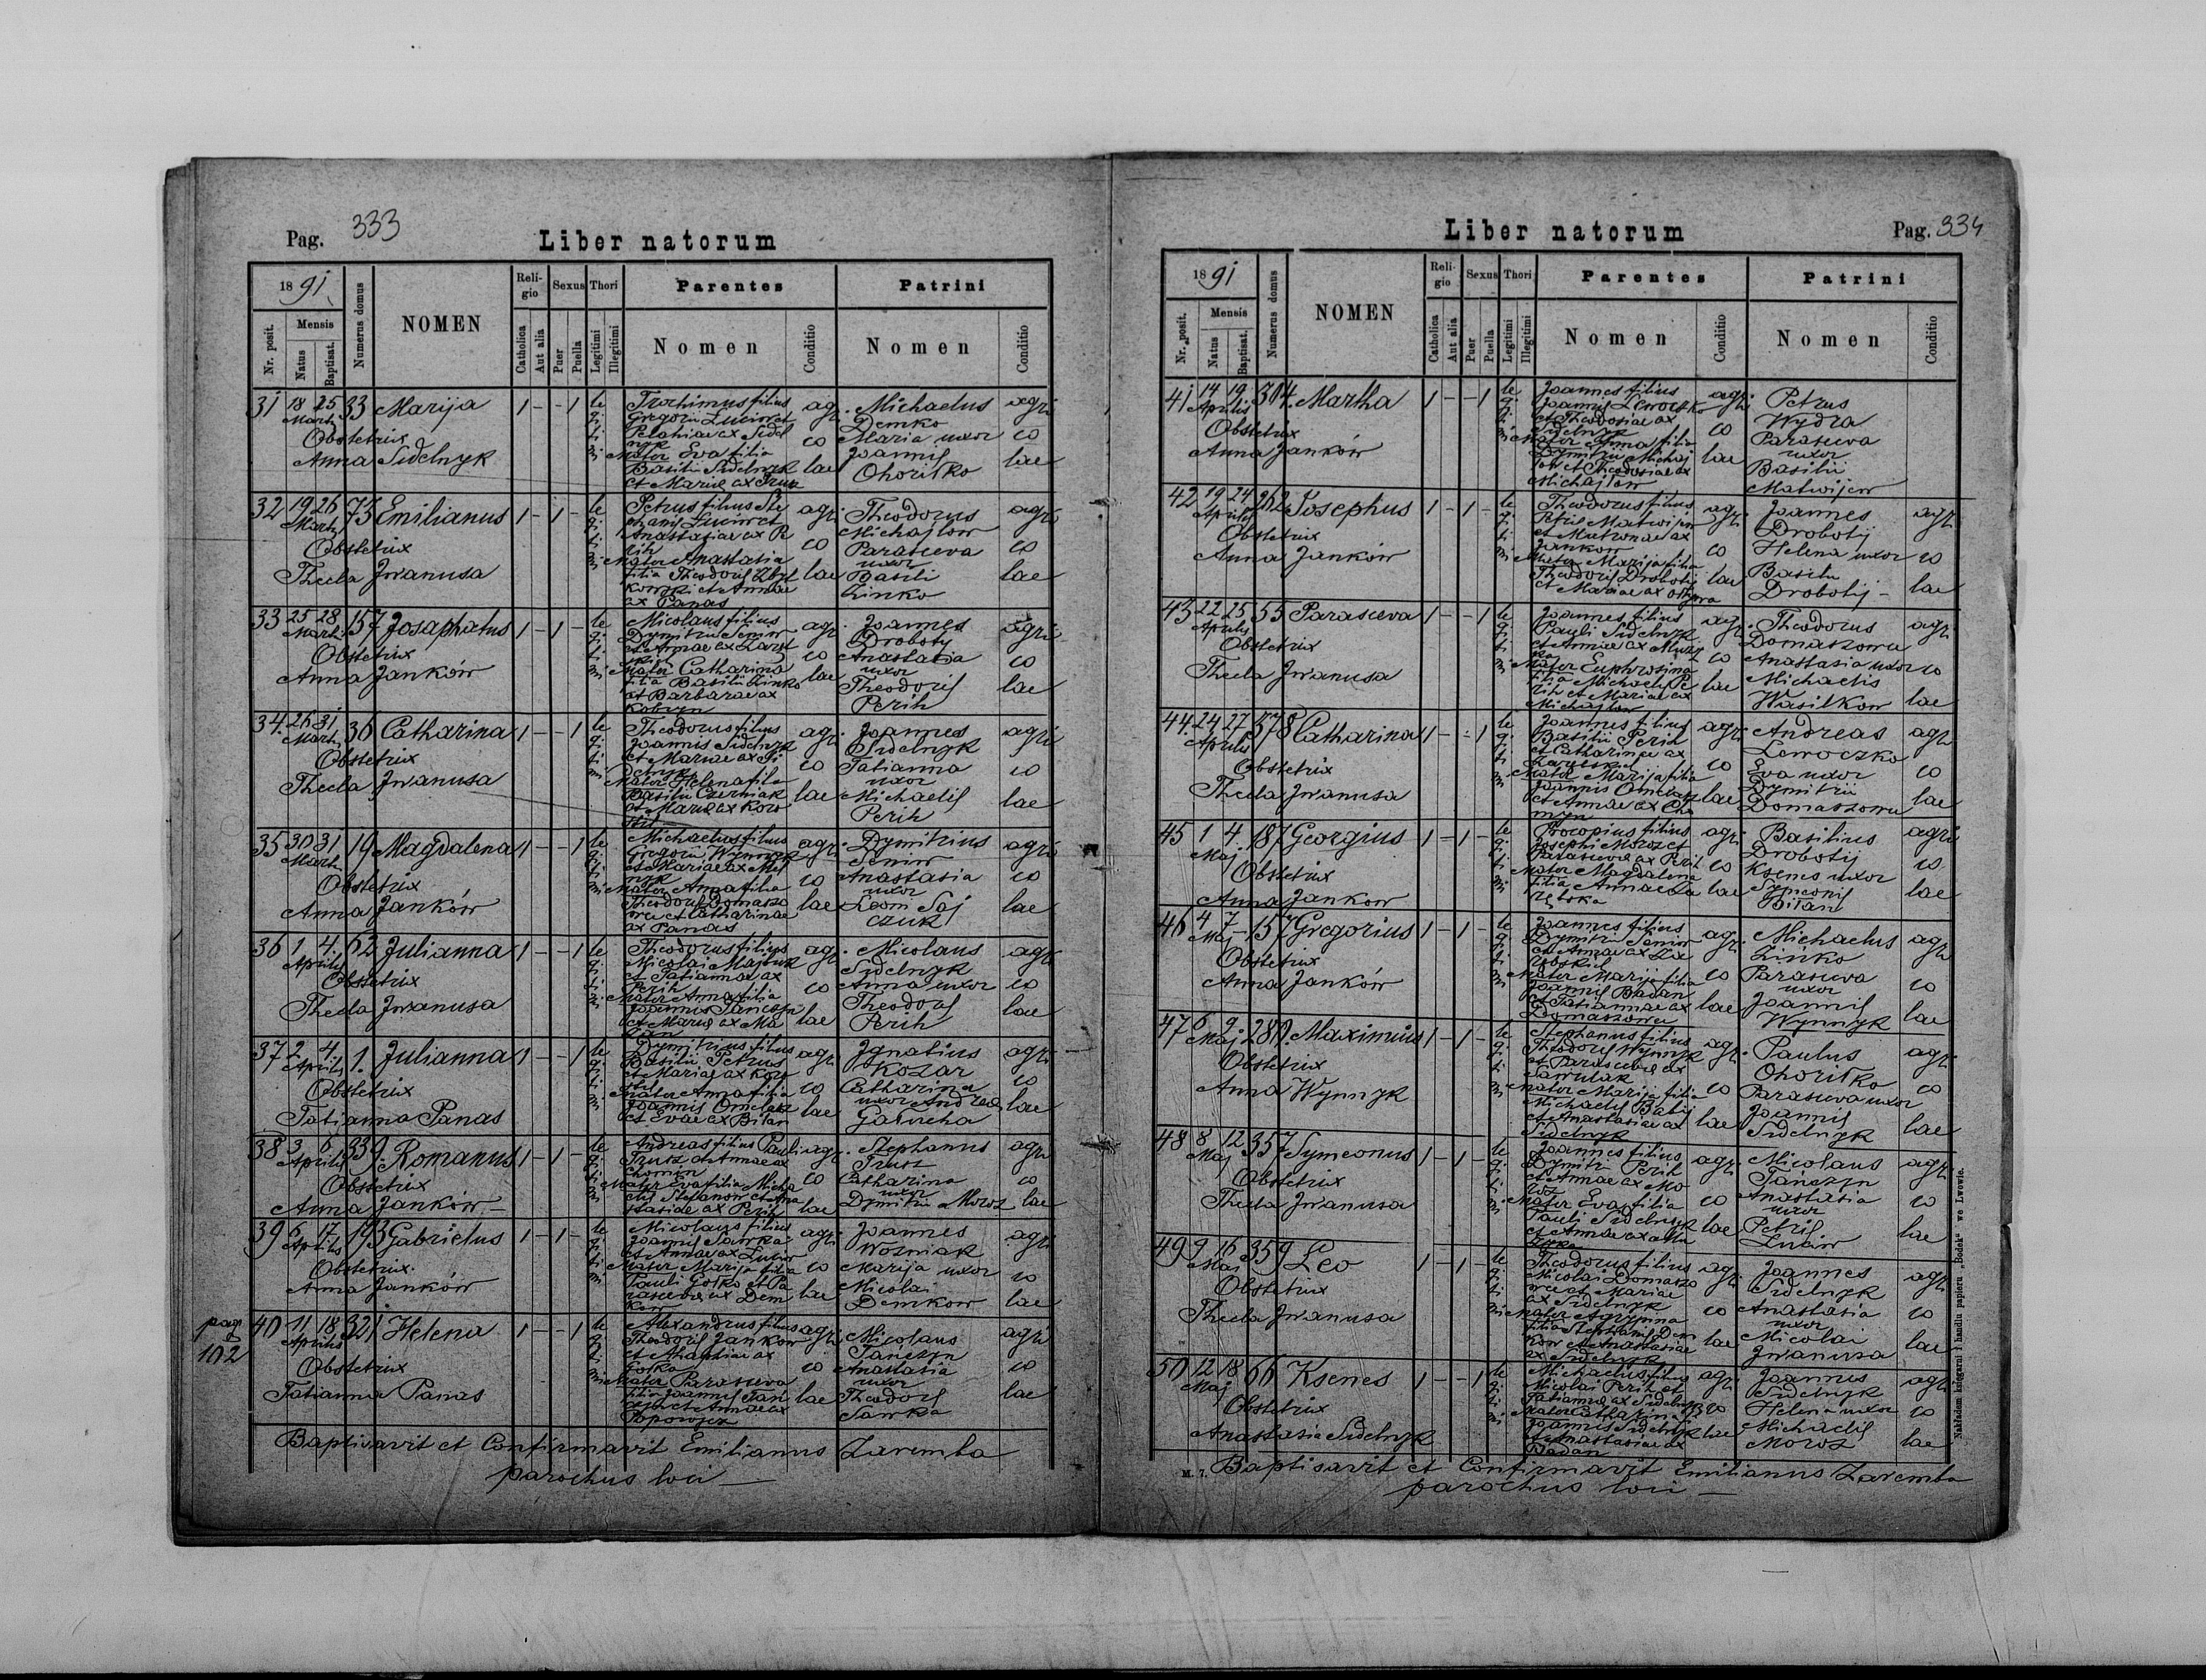 Pag. 333
Liber natorum
1891
Numerus domus
NOMEN
Reli-
gio
Sexus
Thori
Parentes
Patrini
Nr. posit.
Mensis
Natus
Baptisat.
Catholica
Aut alia
Puer
Puella
Legitimi
Illegitimi
Nomen
Conditio
Nomen
Conditio
31 18 25 33 Marija 1 - - 1
Martii
Obstetrix
Anna Sidelnyk
legitimi
Trochimus filius
Gregorii Luciw et
Pelahiae ex Sidel
nyk
Mater Eva filia
Basilii Sidelnyk
et Mariae ex Trusz
agricolae
Michaelus
Demko
Maria uxor
Joannis
Ohoritko
agricolae
32 19 26 73 Emilianus 1 - 1 -
Martii
Obstetrix
Thecla Jwanusa
legitimi
Petrus filius Ste
phanis Luciw et
Anastasiae ex Pe
rih
Mater Anastasia
filia Theodoris
et Annae
ex Panas
agricolae
Theodorus
Michajlow
Parasceva
uxor
Basili
Zinko
agricolae
33 25 28 157 Josaphatus 1 - 1 -
Martii
Obstetrix
Anna Janków
legitimi
Nicolaus filius
Dymitrii Seniw
et Annae ex
Mater Catharina
filia Basilii Zinko
et Barbarae ex
Kobryn
agricolae
Joannes
Droboty
Anastasia
uxor
Theodoris
Perih
agricolae
34. 26 31 36 Catharina 1 - - 1
Martii
Obstetrix
Thecla Jwanusa
legitimi
Theodorus filius
Joannis Sidelnyk
et Mariae ex Si
delnyk
Mater Helena filia
Basilii Czerniak
et Mariae ex
agricolae
Joannes
Sidelnyk
Tatianna
uxor
Michaelis
Perih
agricolae
35 30 31 19 Magdalena 1 - - 1
Martii
Obstetrix
Anna Janków
legitimi
Michaelus filius
Gregorii Wynnyk
et Mariae ex Mel
nyk
Mater Anna filia
Theodoris Domaszo
wec et Catharinae
ex Panas
agricolae
Dymitrius
Seniw
Anastasia
uxor
Leoni Saj
czuk
agricolae
36 1. 4. 62 Julianna 1 - - 1
Aprilis
Obstetrix
Thecla Jwanusa
legitimi
Theodorus filius
Nicolai
et Tatiannae ex
Perih
Mater Anna filia
Joannis Tanczyn
et Mariae ex
agricolae
Nicolaus
Sidelnyk
Anna uxor
Theodoris
Perih
agricolae
37 2 4 1. Julianna 1 - - 1
Aprilis
Obstetrix
Tatianna Panas
legitimi
Dymitrius filius
Basilii Petrus
et Mariae ex
Mater Anna filia
Joannis Omelasz
et Evae ex Bilan
agricolae
Jgnatius
Kozar
Catharina
uxor Andreae
agricolae
38 3 6 339. Romanus 1 - 1 -
Aprilis
Obstetrix
Anna Janków -
legitimi
Andreas filius Pauli
Trusz et Annae ex
Chomin
Mater Eva filia Micha
elis Stefanow et Ana
stasiae ex Perih
agricolae
Stephanus
Trusz
Catharina
uxor
Dymitrii Moroz
agricolae
39 6 17 193 Gabrielus 1 - 1 -
Aprilis
Obstetrix.
Anna Janków
legitimi
Nicolaus filius
Joannis Sawka
et Annae ex Luciw
Mater Marija filia
Pauli Gosko et Pa
rascevae ex Dem
kow
agricolae
Joannes
Wozniak
Marija uxor
Nicolai
Demkow
agricolae
pag
102
40 11 18 321. Helena 1 - - 1
Aprilis
Obstetrix
Tatianna Panas
legitimi
Alexandrus filius
Theodoris Jankow
et Ahaphiae ex
Gorka
Mater Parasceva
filia Joannis Tan
czyn et Annae ex
Popowycz
agricolae
Nicolaus
Tanczyn
Anastasia
uxor
Theodoris
Sawka
agricolae
Baptisavit et Confirmavit Emilianus Zaremba
parochus loci -
Liber natorum
Pag. 334
1891
Numerus domus
NOMEN
Reli-
gio
Sexus
Thori
Parentes
Patrini
Nr. posit.
Mensis
Natus
Baptisat.
Catholica
Aut alia
Puer
Puella
Legitimi
Illegitimi
Nomen
Conditio
Nomen
Conditio
41 14 19 304. Martha 1 - - 1
Aprilis
Obstetrix
Anna Janków
legitimi
Joannes filius
Joannis Lewoczko
et Theodosiae ex
Sidelnyk
Mater Anna filia
Dymitrii Michaj
low et Theodosiae ex
Michajlow
agricolae
Petrus
Wydra
Parasceva
uxor
Basilii
Matwijew
42 19 24 262 Josephus 1 - 1 -
Aprilis
Obstetrix
Anna Janków
legitimi
Theodorus filius
Petris Matwijew
et Matronae ex
Jankow
Mater Marija filia
Theodoris Drobotij
et Mariae ex
agricolae
Joannes
Drobotij
Helena uxor
Basilii
Drobotij -
agricolae
43 22 25 55 Parasceva 1 - - 1
Aprilis
Obstetrix
Thecla Jwanusa
legitimi
Joannes filius
Pauli Sidelnyk
et Annae ex
Mater Euphrosina
filia Michaelis Pe
rih et Mariae ex
Michajlow
agricolae
Theodorus
Domaszowec
Anastasia uxor
Michaelis
Wasilkow
agricolae
44. 24 27 378 Catharina 1 - - 1
Aprilis
Obstetrix
Thecla Jwanusa
legitimi
Joannes filius
Basilii Perih
et Catharinae ex
Mater Marija filia
Joannis Omelasz
et Annae ex Cho
myn
agricolae
Andreas
Lewoczko
Eva uxor
Dymitrii
Domaszowec
agricolae
45 1 4 187 Georgius 1 - 1 -
Maj
Obstetrix
Anna Jankow
legitimi
Procopius filius
Josephi Moroz et
Parascevae ex Perih
Mater Magdalena
filia Annae Za
agricolae
Basilius
Drobotij
Ksenis uxor
Symeonis
Bilan
agricolae
46 4 7 157 Gregorius 1 - 1 -
Maj
Obstetrix
Anna Janków
legitimi
Joannes filius
Dymitrii Seniw
et Annae ex
Mater Marija filia
Joannis Badan
et Tatiannae ex
Domaszowec
agricolae
Michaelus
Zinko
Parasceva
uxor
Joannis
Wynnyk
agricolae
47 6 9 280 Maximius 1 - 1 -
Maj
Obstetrix
Anna Wynnyk
legitimi
Stephanus filius
Theodoris Wynnyk
et Parascevae ex
Mater Marija filia
Michaelis Batij
et Anastasiae ex
Sidelnyk
agricolae
Paulus
Ohoritko
Parasceva uxor
Joannis
Sidelnyk
agricolae
48 8 12 357 Symeonus 1 - 1 -
Maj
Obstetrix
Thecla Jwanusa
legitimi
Joannes filius
Dymitrii Perih
et Annae ex Mo
roz
Mater Eva filia
Pauli Sidelnyk
et Annae ex
agricolae
Nicolaus
Tanczyn
Anastasia
uxor
Petris
Luciw
agricolae
49 9 16 359 Leo 1 - 1 -
Maj
Obstetrix
Thecla Jwanusa
legitimi
Theodorus filius
Nicolai Domaszo
wec et Mariae
ex Sidelnyk
Mater Agrypina
filia Stephanis Dem
kow et Anastasiae
ex Sidelnyk
agricolae
Joannes
Sidelnyk
Anastasia
uxor
Nicolai
Jwanusa
agricolae
50 12 18 66 Ksenes 1 - - 1
Maj
Obstetrix
Anastasia Sidelnyk
legitimi
Michaelus filius
Nicolai Perih et
Tatiannae ex Sidelnyk
Mater Catharina fi
Joannis Sidelnyk
et Anastasiae ex
Badan
agricolae
Joannes
Sidelnyk
Helena uxor
Michaelis
Moroz
agricolae
M. 7. Baptisavit et Confirmavit Emilianus Zaremba
parochus loci -
Nakładem księgarni i handlu papieru „Bodek“ we Lwowie.